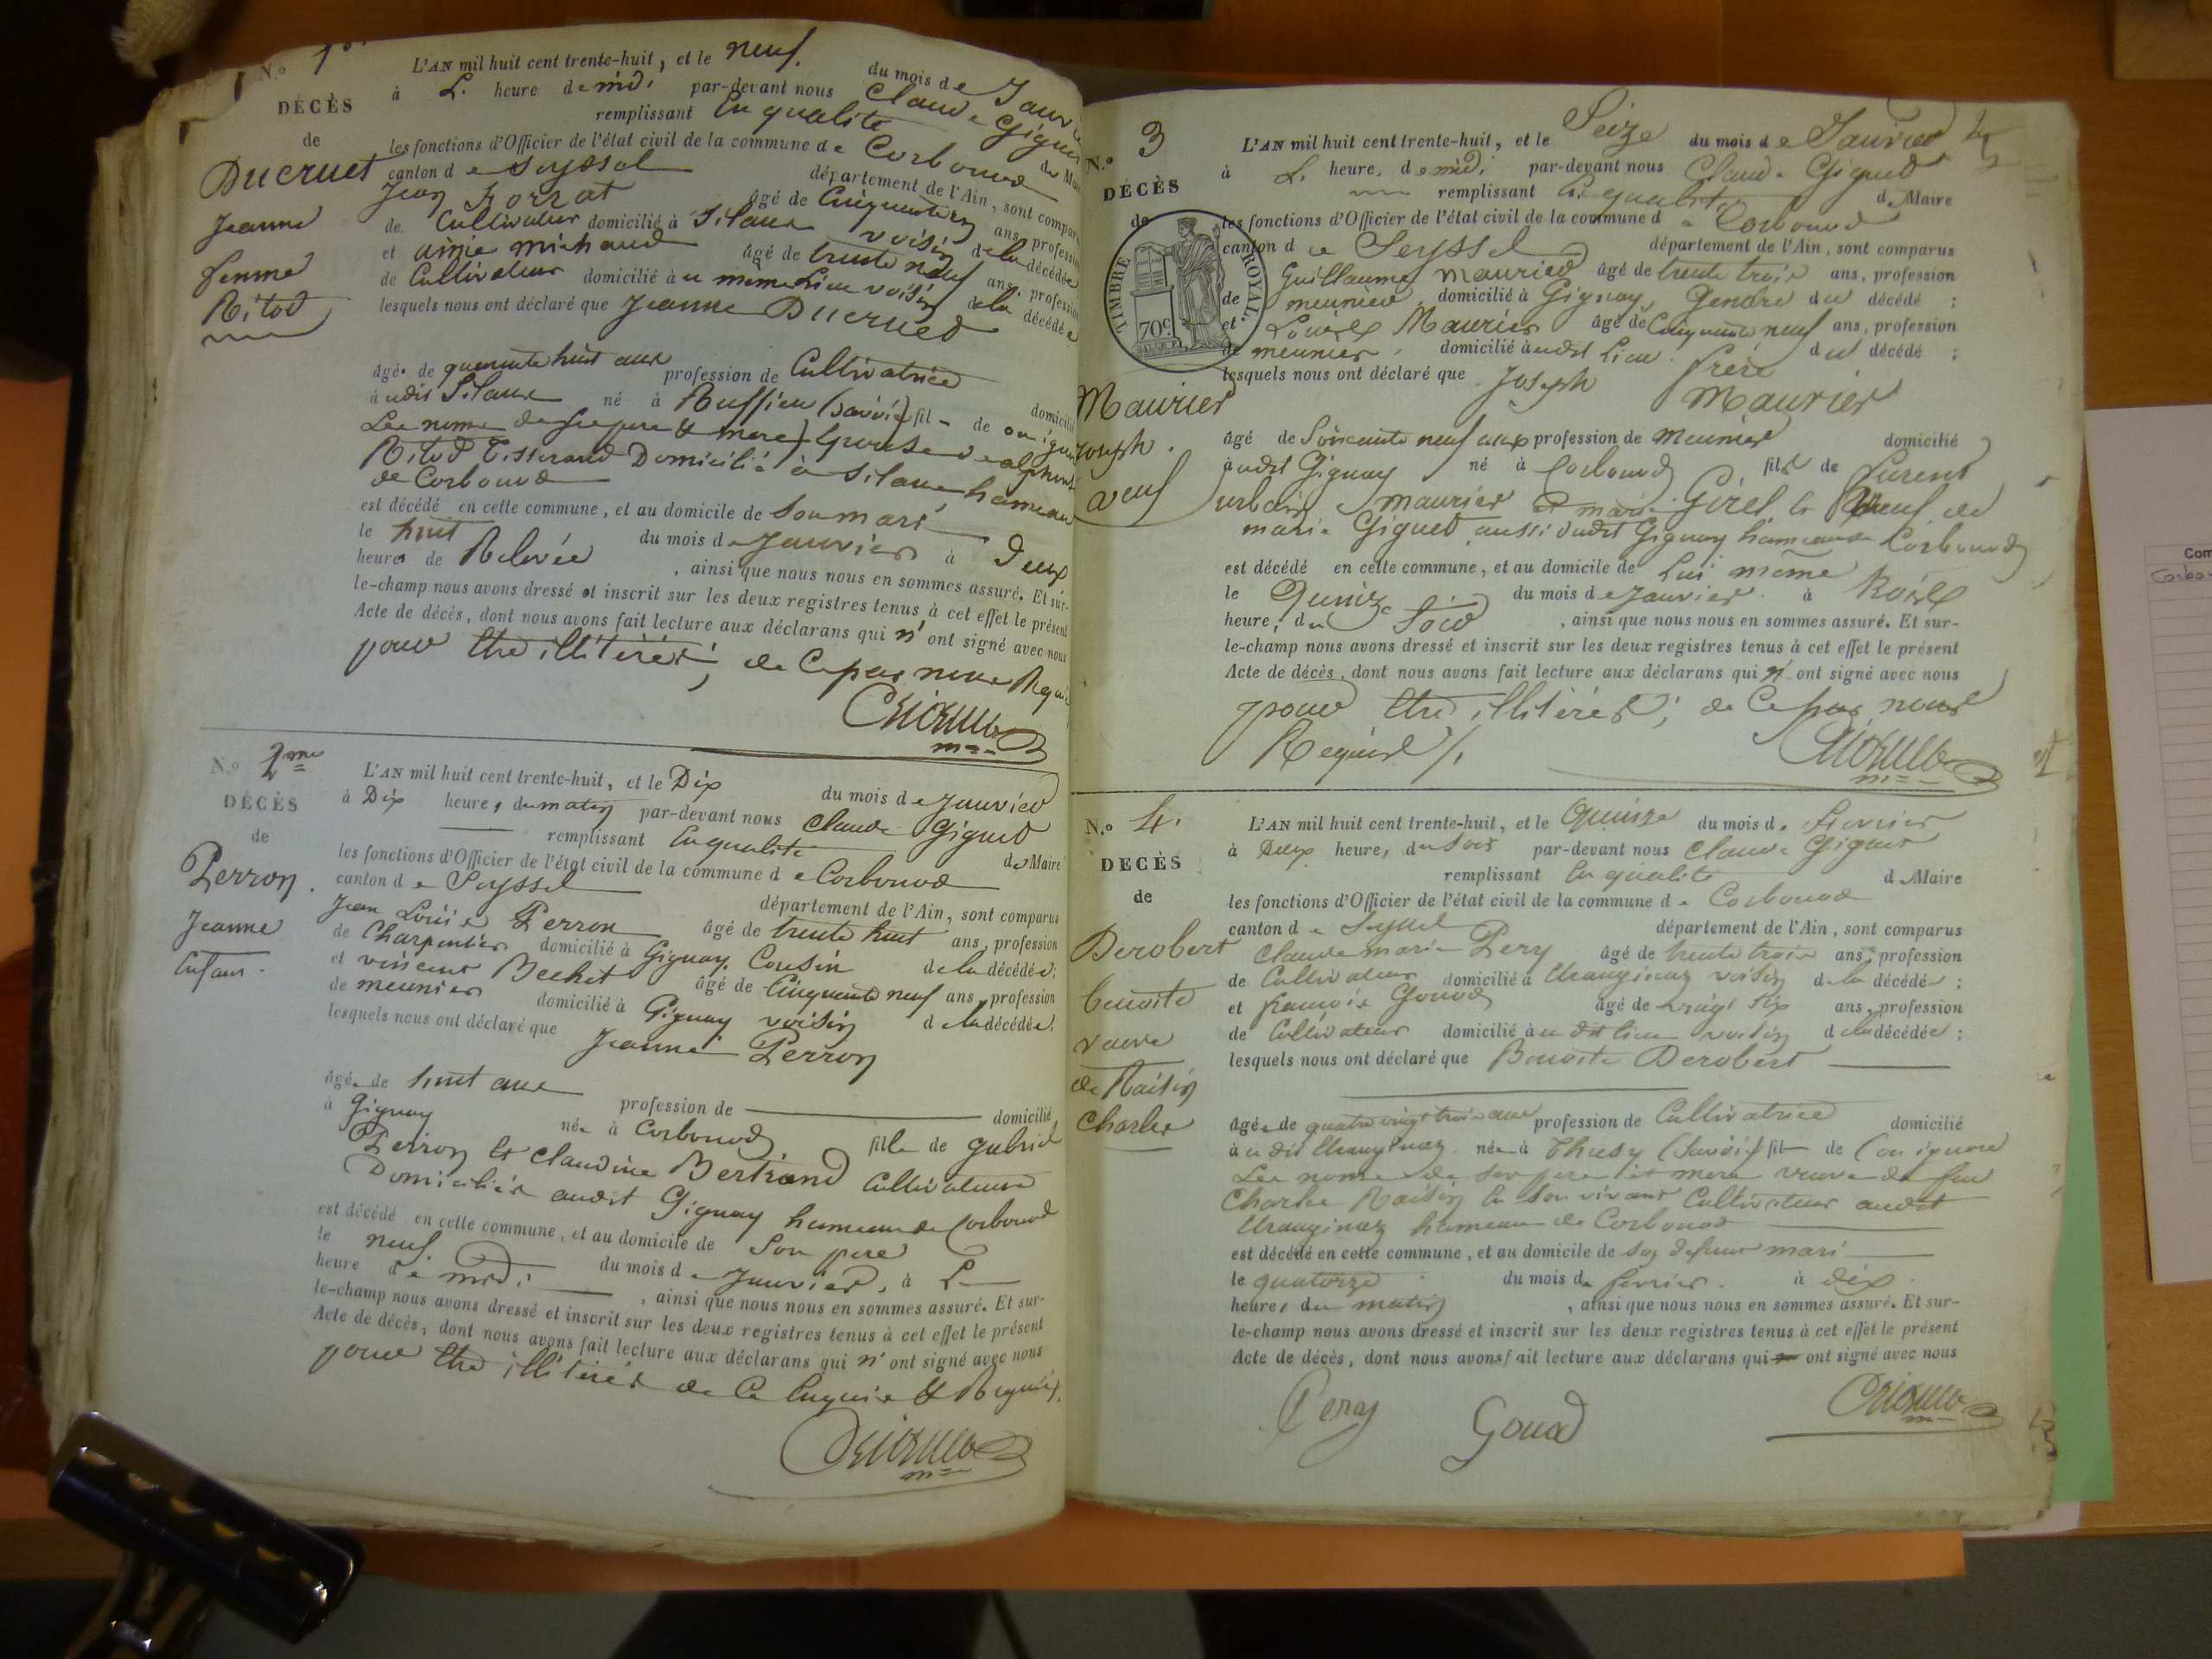 N.º 1º
DÉCÈS
de
Ducruet
Jeanne
femme
Ritod
L'AN mil huit cent trente-huit, et le neuf. du mois de Janvier
à L. heure de midi par-devant nous Claude Giguet
remplissant En qualité de Maire
les fonctions d'Officier de l'état civil de la commune de Corbonod
canton de Seyssel département de l'Ain, sont comparus
Jean âgé de ans, profession
de Cultivateur domicilié à Silans voisin de la décédée
et aimé michaud âgé de trente neuf ans, profession
de Cultivateur domicilié à ce même Lieu voisin de la décédée
lesquels nous ont déclaré que Jeanne Ducruet
âgée de quarente huit ans profession de Cultivatrice domicilié
à udit Silans né à Ruffieu (Savoie) fil- de on ignore
Les noms de ses pere & mere) Epouse de
Ritod Tisserand Domicilié à Silans hameau
de Corbonod
est décédé en cette commune, et au domicile de Son mari
le huit du mois de Janvier à Deux
heures de Relevée, ainsi que nous nous en sommes assuré. Et sur-
le-champ nous avons dressé et inscrit sur les deux registres tenus à cet effet le présent
Acte de décès, dont nous avons fait lecture aux déclarans qui n'ont signé avec nous
pour être illitérés; de Ce par nous Requis
N.º 2me
DÉCÈS
de
Perron.
Jeanne
Enfant.
L'AN mil huit cent trente-huit, et le Dix du mois de Janvier
à Dix heures du matin par-devant nous Claude Giguet
remplissant En qualité de Maire
les fonctions d'Officier de l'état civil de la commune de Corbonod
canton de Seyssel département de l'Ain, sont comparus
Jean Louis Perron âgé de trente huit ans, profession
de Charpentier domicilié à Gignay, Cousin de la décédée;
et vincent Bechet âgé de Cinquente neuf ans, profession
de meunier domicilié à Gignay voisin de la décédée.
lesquels nous ont déclaré que
Jeanne Perron
âgée de huit ans profession de domicilié
à Gignay née à Corbonod fille de gabriel
Perron & Claudine Bertrand Cultivateurs
Domiciliés audit Gignay hameau de Corbonod
est décédé en cette commune, et au domicile de Son pere
le neuf. du mois de Janvier, à L
heure de midi, ainsi que nous nous en sommes assuré. Et sur-
le-champ nous avons dressé et inscrit sur les deux registres tenus à cet effet le présent
Acte de décès, dont nous avons fait lecture aux déclarans qui n'ont signé avec nous
pour être illitérés de Ce Enquis & Requis.
N.º 3
DÉCÈS
de
TIMBRE ROYAL.
70c
Maurier
Joseph.
veuf
L'AN mil huit cent trente-huit, et le Seize du mois de Janvier
à L. heure, de midi par-devant nous Claude Giguet
remplissant En qualité de Maire
les fonctions d'Officier de l'état civil de la commune de Corbonod
canton de Seyssel département de l'Ain, sont comparus
Guillaume Maurier âgé de trente trois ans, profession
de meunier, domicilié à Gignay, Gendre du décédé;
et Louis Maurier âgé de Cinquente neuf ans, profession
de meunier, domicilié à udit Lieu. frère du décédé;
lesquels nous ont déclaré que Joseph Maurier
âgé de Soixante neuf ans profession de Meunier domicilié
à udit Gignay né à Corbonod fils de
urbain Maurier et marie Girel & Veuf de
marie Giguet aussi dudit Gignay hameau de Corbonod
est décédé en cette commune, et au domicile de Lui même
le Quinze du mois de Janvier. à trois
heures, du Soir, ainsi que nous nous en sommes assuré. Et sur-
le-champ nous avons dressé et inscrit sur les deux registres tenus à cet effet le présent
Acte de décès, dont nous avons fait lecture aux déclarans qui n'ont signé avec nous
pour être illitérés; de Ce par nous
Requis /.
N.º 4.
DÉCÈS
de
Derobert
benoite
veuve
de Raisin
Charles
L'AN mil huit cent trente-huit, et le Quinze du mois de fevrier
à Deux heures, du Soir par-devant nous Claude Giguet
remplissant En qualité de Maire
les fonctions d'Officier de l'état civil de la commune de Corbonod
canton de Seyssel département de l'Ain, sont comparus
Claude marie Pery âgé de trente trois ans, profession
de Cultivateur domicilié à voisin de la décédée;
et françois Gonod âgé de vingt six ans, profession
de Cultivateur domicilié à u dit lieu voisin de la décédée;
lesquels nous ont déclaré que Benoite Derobert
âgée de quatre vingt trois ans profession de Cultivatrice domicilié
à u dit née à Thusy (Savoie) fil- de (on ignore
Les noms de ses pere et mere veuve de feu
Charles Raisin En Son vivant Cultivateur audit
hameau de Corbonod
est décédé en cette commune, et au domicile de Son defunt mari
le quatorze du mois de fevrier. à dix
heures du matin, ainsi que nous nous en sommes assuré. Et sur-
le-champ nous avons dressé et inscrit sur les deux registres tenus à cet effet le présent
Acte de décès, dont nous avons fait lecture aux déclarans qui ont signé avec nous
Pery
Com
Corbo